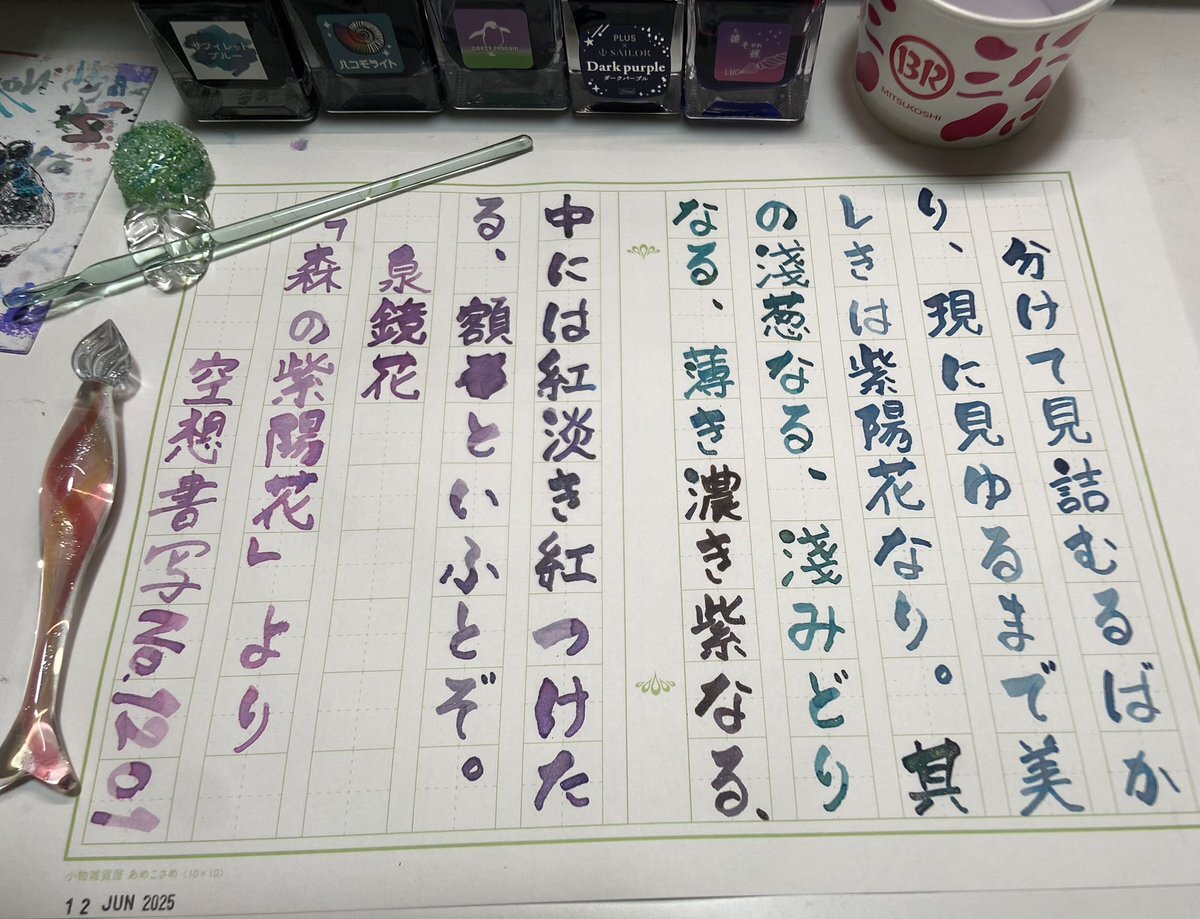 サフィレット
ブルー
ハコモライト
PLUS
×
SAILOR
Dark purple
ダークパープル
誰そ彼
BR
MITSUKOSHI
分けて見詰むるばか
り、現に見ゆるまで美
しきは紫陽花なり。其
の淺葱なる、淺みどり
なる、薄き濃き紫なる、
中には紅淡き紅つけた
る、額といふとぞ。
泉鏡花
「森の紫陽花」より
空想書写No.1201
小物雑貨屋 あめこさめ (10×10)
12 JUN 2025